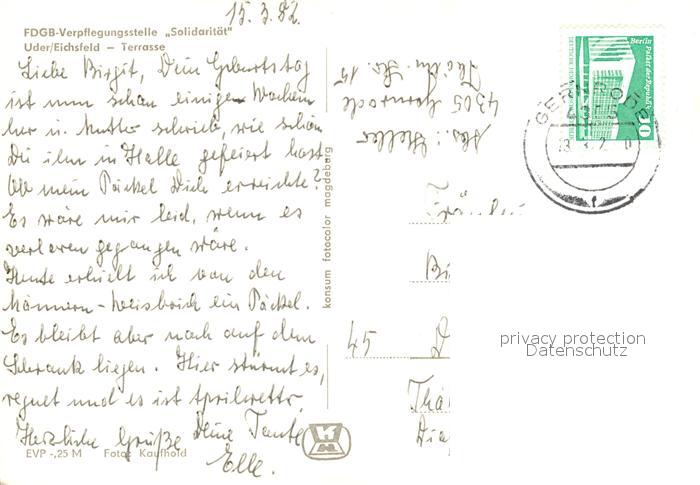 15.3.82.
FDGB-Verpflegungsstelle „Solidarität"
Uder/Eichsfeld — Terrasse
Liebe Birgit, Dein Geburtstag
ist nun schon einige Wochen
her u. Mutter schrieb, wie schön
Du ihn in Halle gefeiert hast
Ob mein Päckel Dich erreichte?
Es wäre mir leid, wenn es
verloren gegangen wäre.
Heute erhielt ich von den
Männern - ein Päckel.
Es bleibt aber noch auf dem
Schrank liegen. Hier stürmt es,
regnet und es ist Aprilwettr.
Herzliche Grüße Deine Tante
Elle.
EVP -,25 M Foto: Kaufhold
konsum fotocolor magdeburg
Abs.:
4305 Gernrode
Str. 15
Berlin Palast der Republik
10
GERNRODE
Fräulein
Bi
45 D
privacy protection
Datenschutz